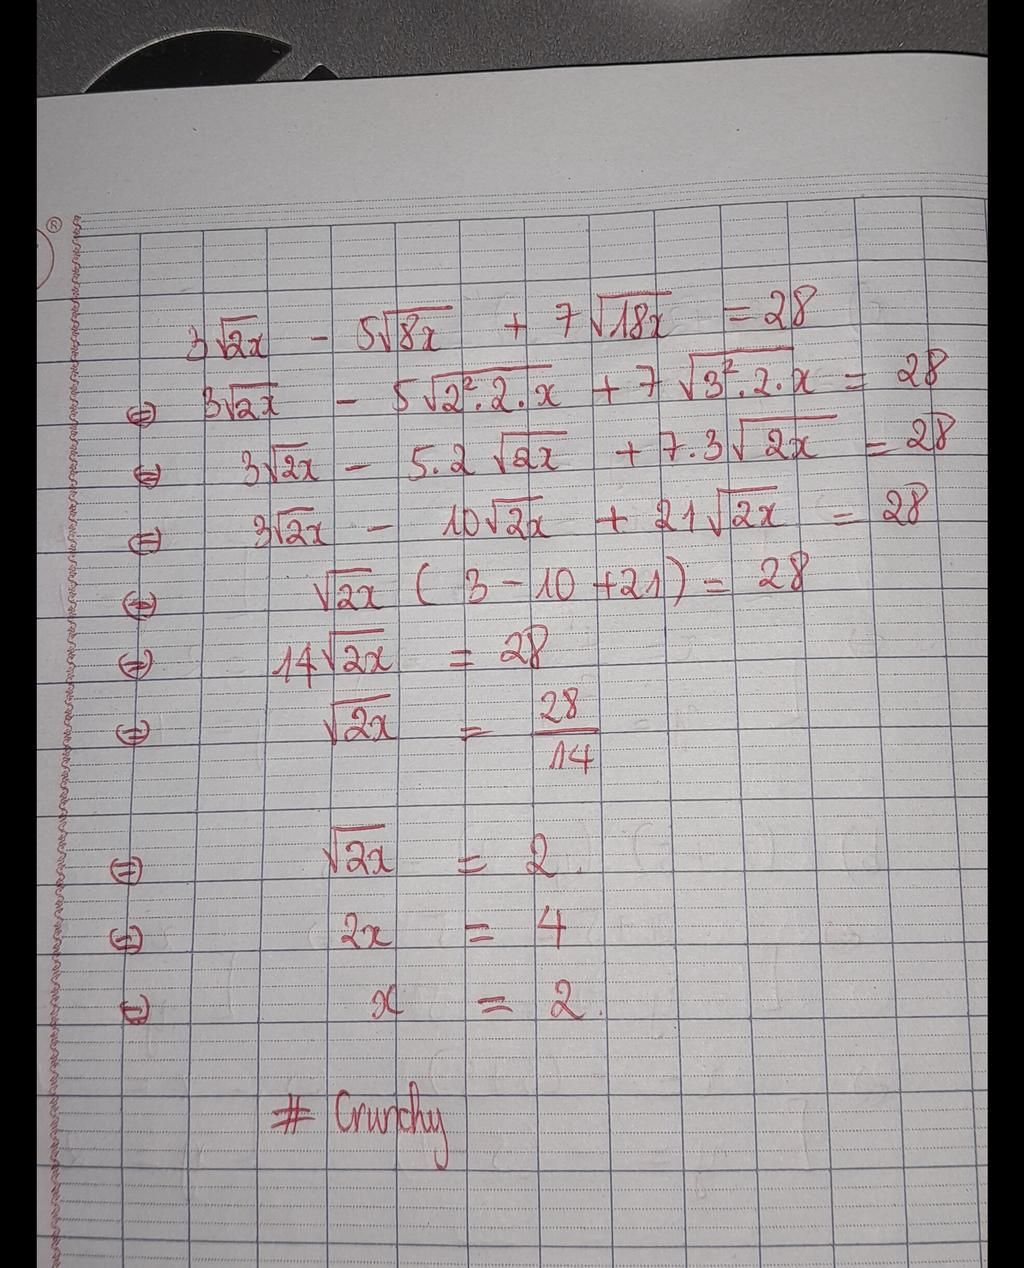 ®
3√2x - 5√8x + 7√18x = 28
⇔ 3√2x - 5√2².2.x + 7√3².2.x = 28
⇔ 3√2x - 5.2√2x + 7.3√2x = 28
⇔ 3√2x - 10√2x + 21√2x = 28
⇔ √2x (3 - 10 + 21) = 28
⇔ 14√2x = 28
⇔ √2x = 28/14
⇔ √2x = 2.
⇔ 2x = 4
⇔ x = 2.
# Crunchy